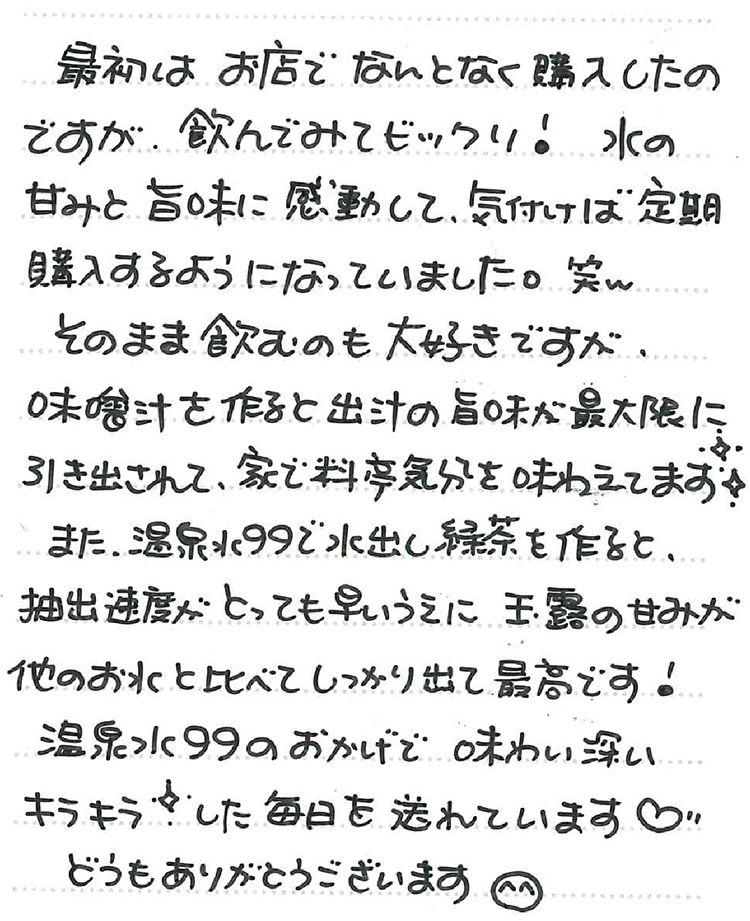 最初は お店で なんとなく 購入したの
ですが、飲んでみてビックリ！ 水の
甘みと 旨味に 感動して、気付けば 定期
購入するようになっていました。笑〜
そのまま飲むのも 大好きですが、
味噌汁を作ると出汁の旨味が最大限に
引き出されて、家で料亭気分を味わえてます
また、温泉水99で水出し緑茶を作ると、
抽出速度がとっても早いうえに 玉露の甘みが
他のお水と比べてしっかり出て最高です！
温泉水99のおかげで 味わい深い
キラキラした 毎日を 送れています♡"
どうもありがとうございます